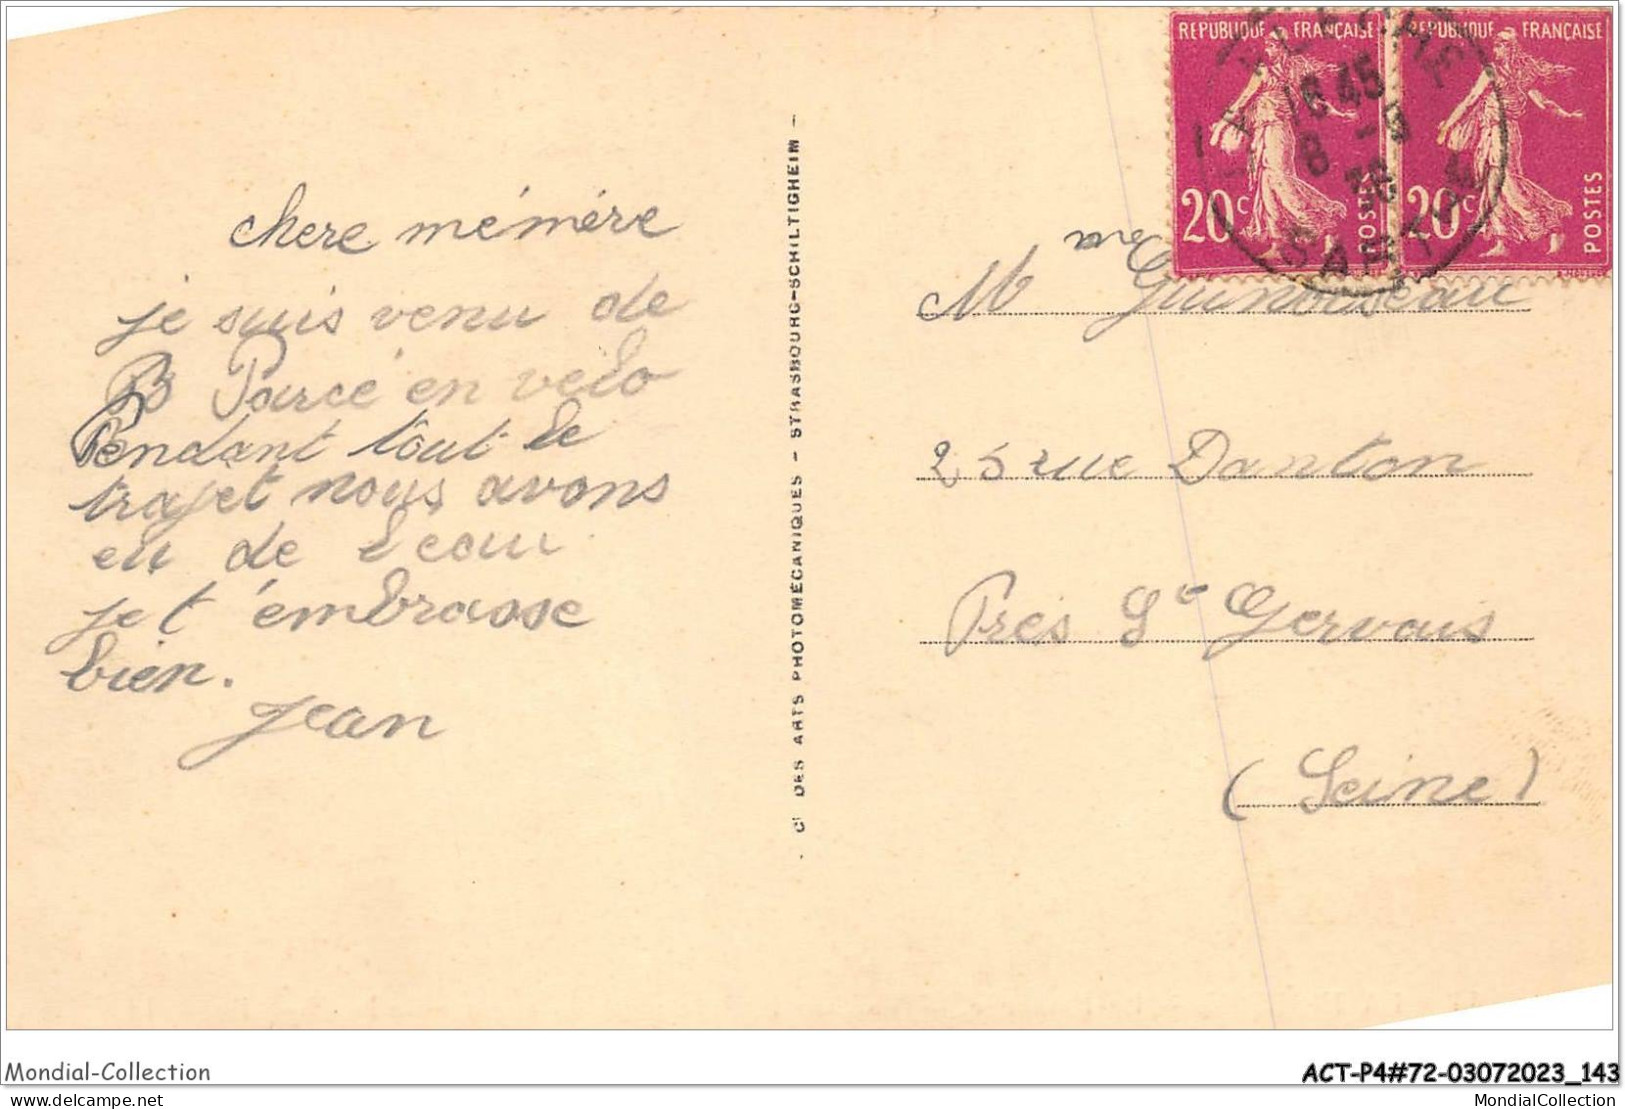 chere mémére
je suis venu de
B Parcé en velo
Pendant tout le
trajet nous avons
eu de l eau
je t'embrasse
bien.
jean
DES ARTS PHOTOMÉCANIQUES - STRASBOURG-SCHILTIGHEIM -
REPUBLIQUE FRANÇAISE
20c
POSTES
REPUBLIQUE FRANÇAISE
20c
POSTES
16 45
8 -9
36
SARTHE
M
25 rue Danton
Prés St Gervais
(Seine)
Mondial-Collection
ACT-P4#72-03072023_143
delcampe.net
MondialCollection